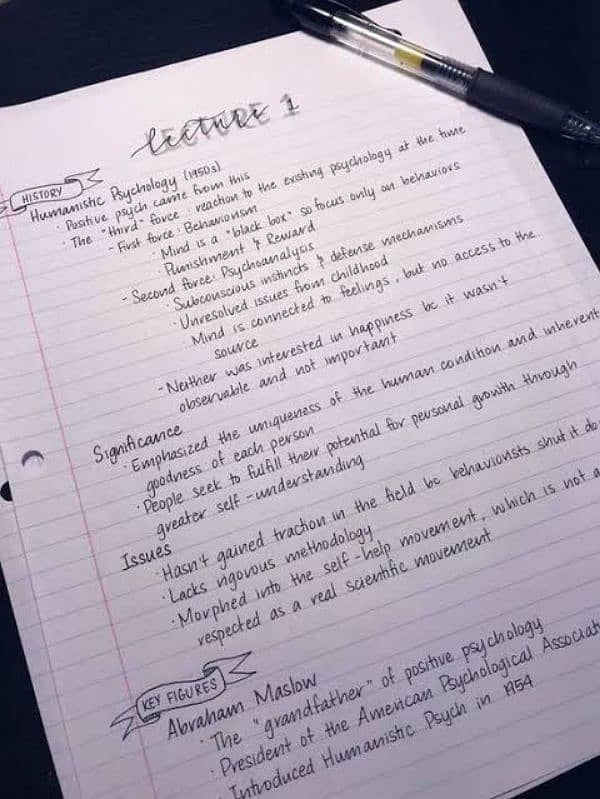 LECTURE 1
lecture
HISTORY
Humanistic Psychology (1950s)
· Positive psych came from this
· The "third" force: reaction to the existing psychology at the time
- First force: Behaviorism
· Mind is a "black box" so focus only on behaviors
· Punishment & Reward
- Second force: Psychoanalysis
· Subconscious instincts & defense mechanisms
· Unresolved issues from childhood
· Mind is connected to feelings, but no access to the
source
- Neither was interested in happiness bc it wasn't
observable and not important
Significance
· Emphasized the uniqueness of the human condition and inherent
goodness of each person
· People seek to fulfill their potential for personal growth through
greater self-understanding
Issues
· Hasn't gained traction in the field bc behaviorists shut it do
· Lacks rigorous methodology
· Morphed into the self-help movement, which is not a
respected as a real scientific movement
KEY FIGURES
Abraham Maslow
· The "grandfather" of positive psychology
· President of the American Psychological Associat
· Introduced Humanistic Psych in 1954